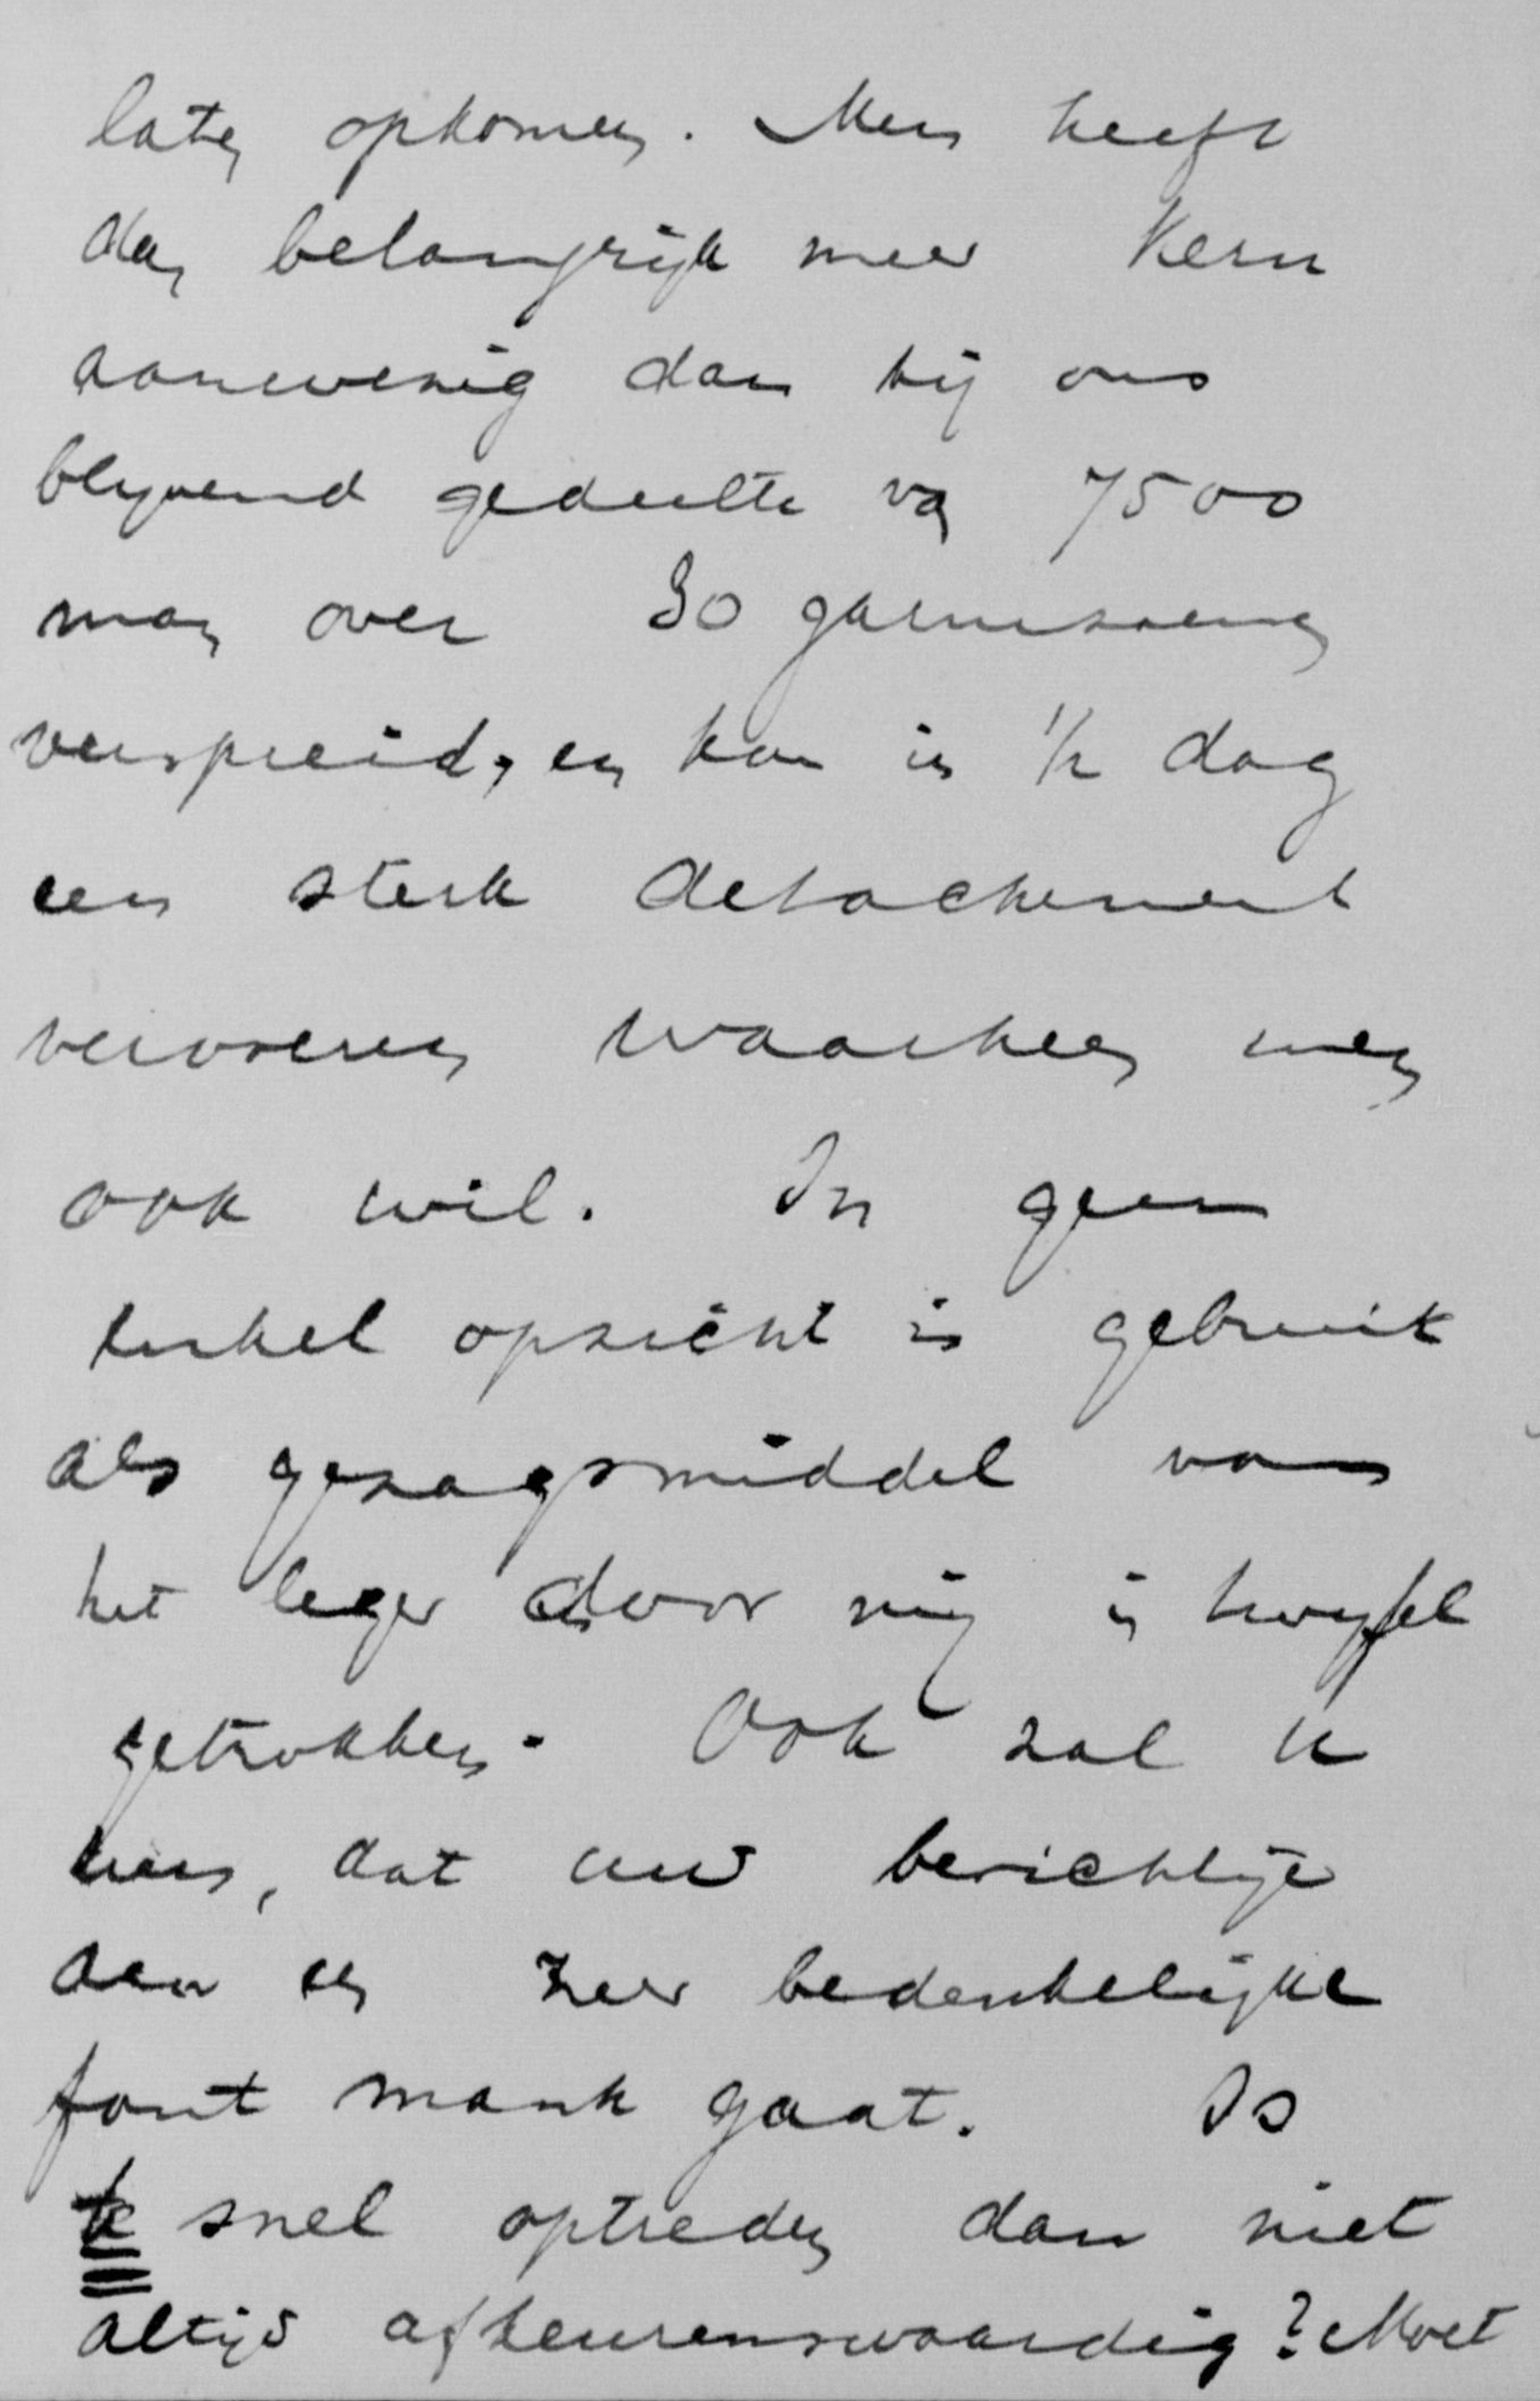 laten opkomen. Men heeft
dan belangrijk meer kern
aanwezig dan bij ons
blijvend gedeelte van 7500
man over 30 garnizoenen
verspreid, en kan in 1/2 dag
een sterk detachement
vervoeren waarheen men
ook wil. In geen
enkel opzicht is gebruik
als gezagsmiddel van
het leger door mij in twijfel
getrokken. Ook zal u
dat uw berichtje
aan een zeer bedenkelijke
fout mank gaat. Is
te snel optreden dan niet
altijd afkeurenswaardig? Moet